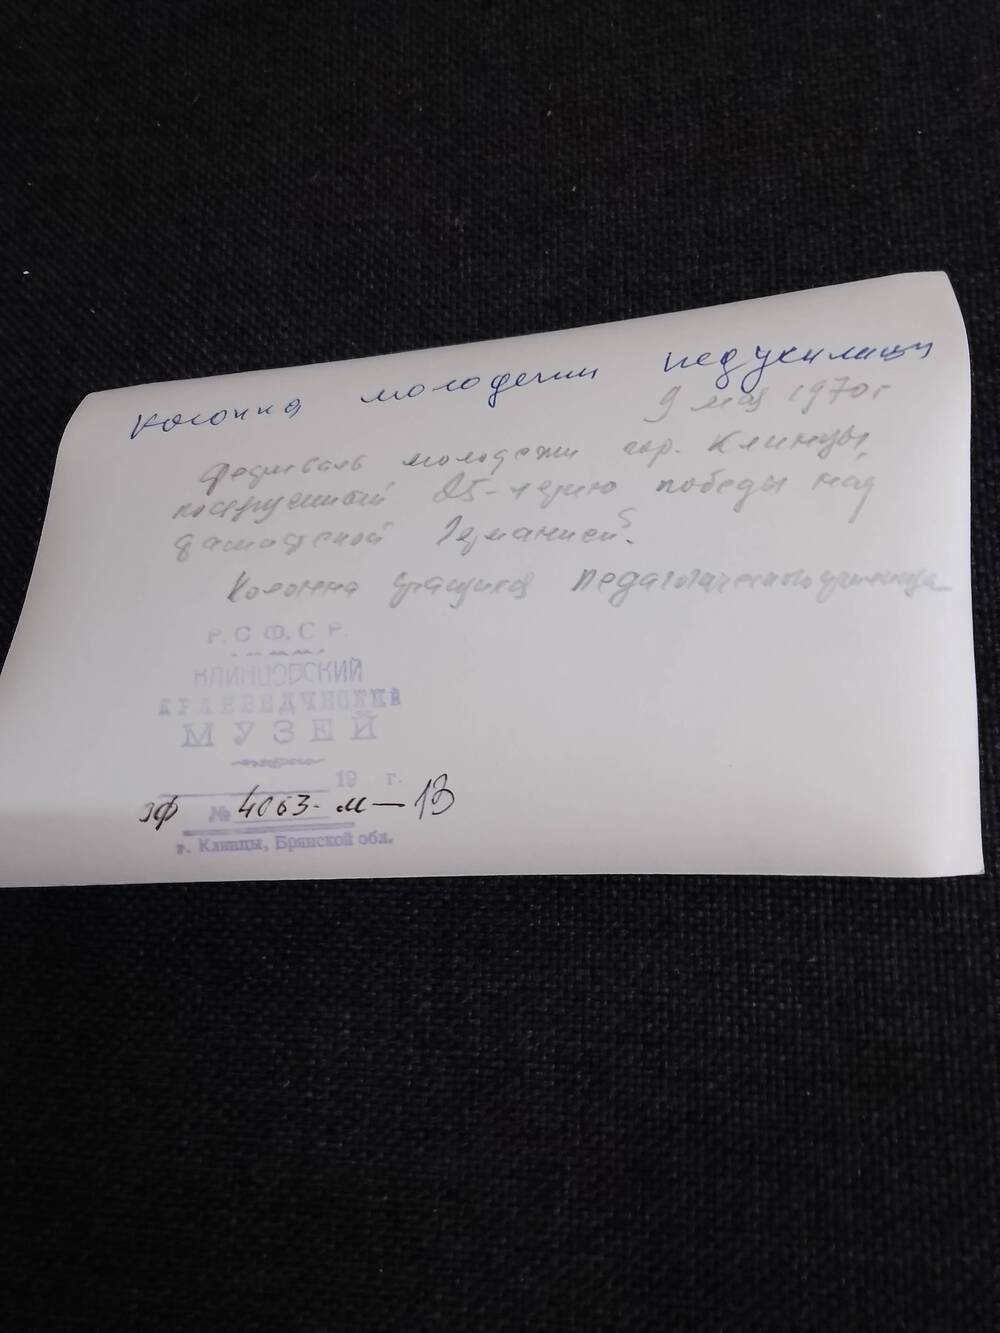 колонна молодежи педучилищ
9 мая 1970 г
Фестиваль молодежи гор. Клинцы,
посвященный 25-летию победы над
фашистской Германией.
Колонна учащихся педагогического училища
Р.С.Ф.С.Р.
КЛИНЦОВСКИЙ
КРАЕВЕДЧЕСКИЙ
МУЗЕЙ
19 г.
№ 4063-м-13
г. Клинцы, Брянской обл.